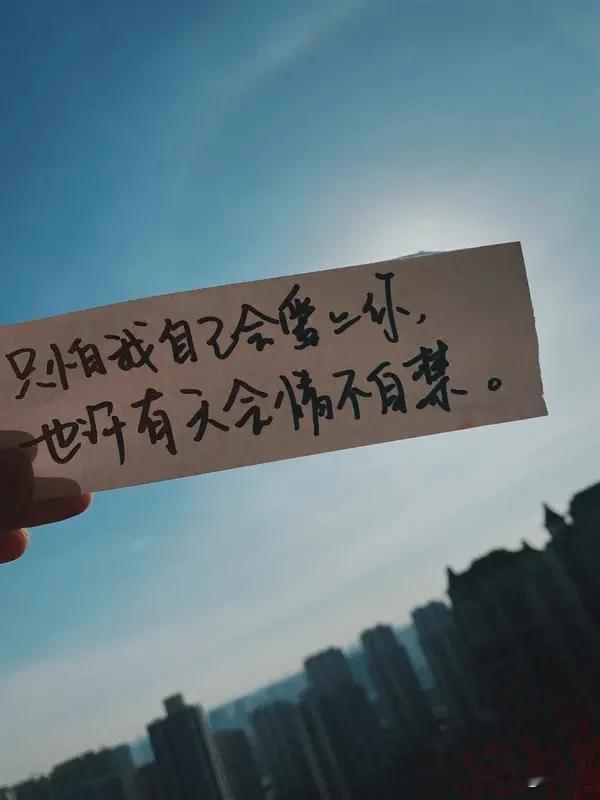 只怕我自己会爱上你,
也许有天会情不自禁。